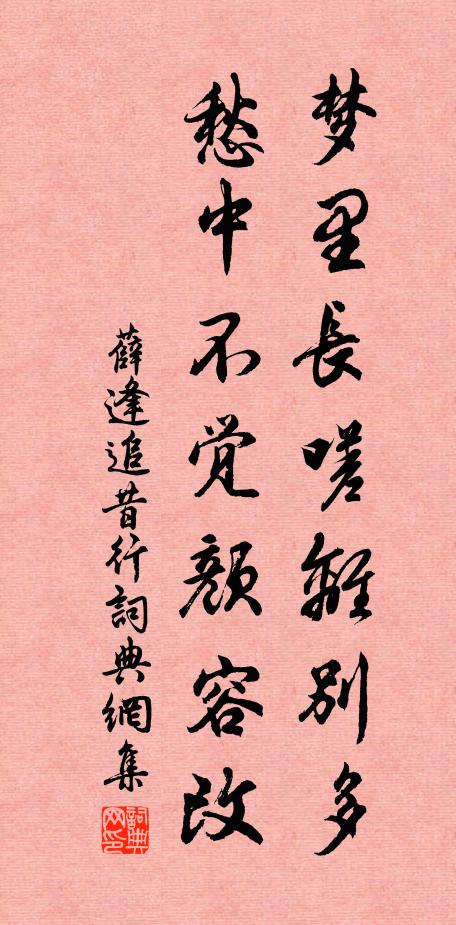 梦里長嗟離别多
愁中不觉顔容改
薛逢追昔行詞典網集
詞典网印